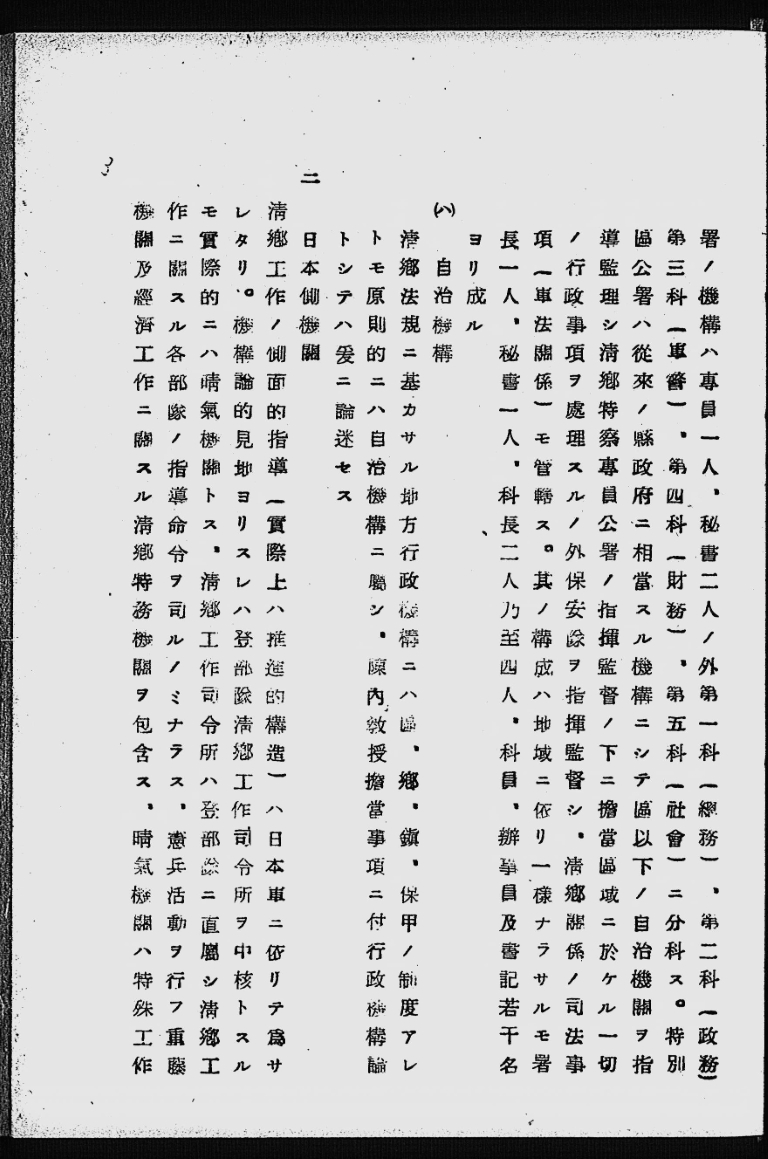 署ノ機構ハ專員一人、秘書二人ノ外第一科(總務)、第二科(政務)
第三科(軍警)、第四科(財務)、第五科(社會)ニ分科ス。特別
區公署ハ從來ノ縣政府ニ相當スル機構ニシテ區以下ノ自治機關ヲ指
導監理シ清鄕特察專員公署ノ指揮監督ノ下ニ擔當區域ニ於ケル一切
ノ行政事項ヲ處理スルノ外保安隊ヲ指揮監督シ、清鄕關係ノ司法事
項(軍法關係)モ管轄ス。其ノ構成ハ地域ニ依リ一樣ナラサルモ署
長一人、秘書一人、科長二人乃至四人、科員、辦事員及書記若干名
ヨリ成ル
(ハ) 自治機構
清鄕法規ニ基カサル地方行政機構ニハ區、鄕、鎭、保甲ノ制度アレ
トモ原則的ニハ自治機構ニ屬シ、陳內敎授擔當事項ニ付行政機構論
トシテハ爰ニ論迷セス
二 日本側機關
清鄕工作ノ側面的指導(實際上ハ推進的構造)ハ日本軍ニ依リテ爲サ
レタリ。機構論的見地ヨリスレハ登部隊清鄕工作司令所ヲ中核トスル
モ實際的ニハ晴氣機關トス、清鄕工作司令所ハ登部隊ニ直屬シ清鄕工
作ニ關スル各部隊ノ指導命令ヲ司ルノミナラス、憲兵活動ヲ行フ重藤
機關及經濟工作ニ關スル清鄕特務機關ヲ包含ス、晴氣機關ハ特殊工作
3